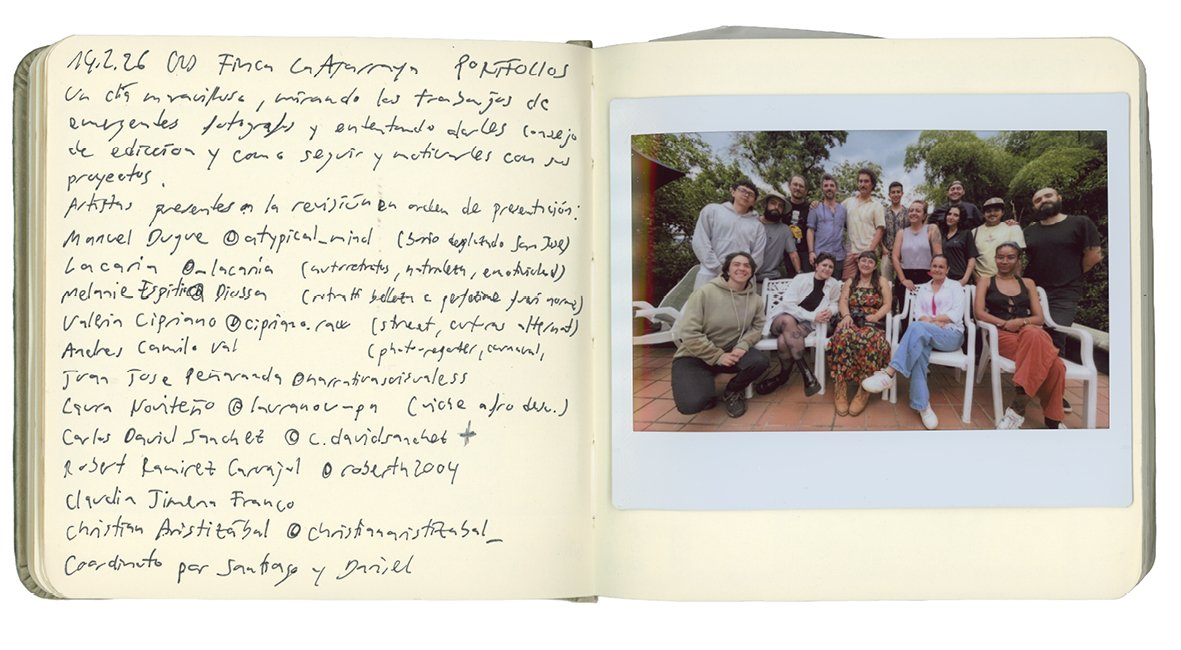 14.2.26 Finca La PORTFOLIOS
Un día maravilloso, mirando los trabajos de
emergentes fotografos y ententando darles consejo
de edicción y como seguir y motivarles con sus
proyectos.
Artistas presentes en la revisión en orden de presentación:
Manuel Duque @atypical_mind (barrio San José)
Lacaria @_lacaria (autorretratos, naturaleza, emotividad)
Melanie @ Diossa (belleza
Valeria Cipriano @cipriano.raw (street, alternat)
Andres Camilo Val (photoreporter, carnaval,
Juan Jose Peñaranda @narrativasvisualess
Laura @ (viche afro
Carlos David Sanchez @c.davidsanchez +
Robert Ramirez Carvajal @roberth2004
Claudia Jimena Franco
Christian Aristizábal @christianaristizabal_
Coordinato por Santiago y Daniel